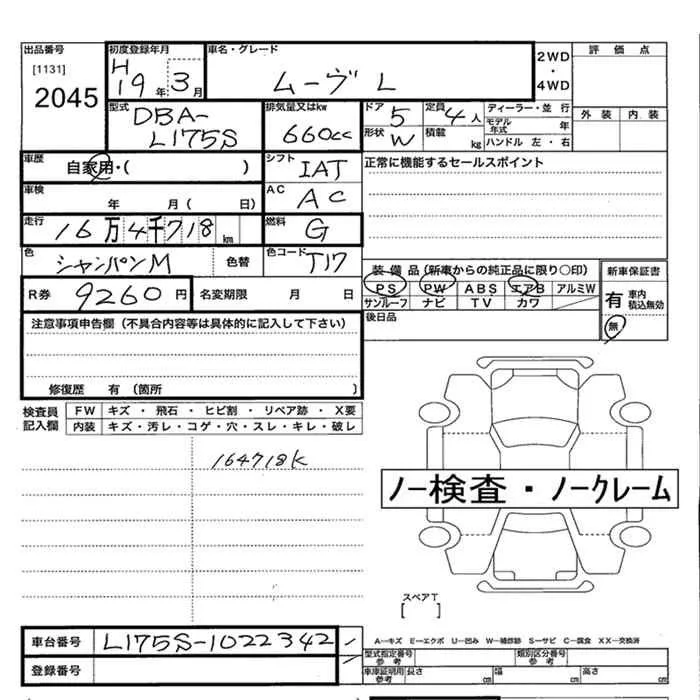 出品番号 初度登録年月 車名・グレード 評価点
[1131] H 19年 3月 ムーヴ L 2WD・4WD
2045
型式 DBA-L175S 排気量又はkw 660cc ドア 5 定員 4人 ディーラー・並行 外装 内装
形状 W 積載 kg モデル年式 年
ハンドル 左・右
車歴 自家用・( ) シフト IAT 正常に機能するセールスポイント
車検 年 月( 日) AC AC
走行 16万4千718km 燃料 G
色 シャンパンM 色替 色コード T17 装備品(新車からの純正品に限り○印) 新車保証書
PS PW ABS エアB アルミW 有 車内積込無効
R券 9260円 名変期限 月 日 サンルーフ ナビ TV カワ
後日品 無
注意事項申告欄(不具合内容等は具体的に記入して下さい)
修復歴 有(箇所 )
検査員記入欄 FW キズ・飛石・ヒビ割・リペア跡・X要
内装 キズ・汚レ・コゲ・穴・スレ・キレ・破レ
164718K
ノー検査・ノークレーム
スペアT
[ ]
車台番号 L175S-1022342 A―キズ E―エクボ U―凹み W―補修跡 S―サビ C―腐食 XX―交換済
型式指定番号 参考 類別区分番号 参考
登録番号 車庫証明用 参考 長さ cm 幅 cm 高さ cm